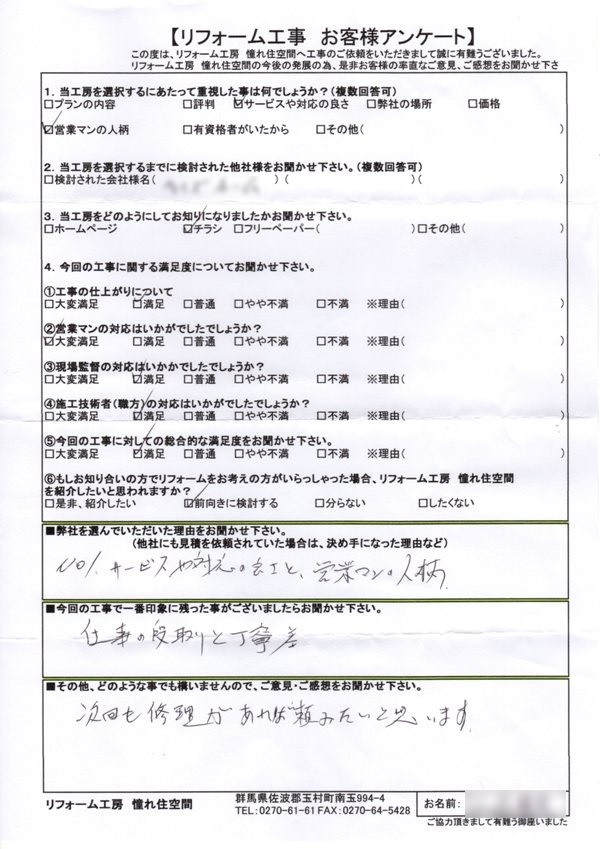 【リフォーム工事 お客様アンケート】
この度は、リフォーム工房 憧れ住空間へ工事のご依頼をいただきまして誠に有難うございました。
リフォーム工房 憧れ住空間の今後の発展の為、是非お客様の率直なご意見、ご感想をお聞かせ下さ
1．当工房を選択するにあたって重視した事は何でしょうか？（複数回答可）
□プランの内容 □評判 ☑サービスや対応の良さ □弊社の場所 □価格
☑営業マンの人柄 □有資格者がいたから □その他( )
2．当工房を選択するまでに検討された他社様をお聞かせ下さい。（複数回答可）
□検討された会社様名( ) ( )( )
3．当工房をどのようにしてお知りになりましたかお聞かせ下さい。
□ホームページ ☑チラシ □フリーペーパー( )□その他( )
4．今回の工事に関する満足度についてお聞かせ下さい。
①工事の仕上がりについて
□大変満足 ☑満足 □普通 □やや不満 □不満 ※理由( )
②営業マンの対応はいかがでしたでしょうか？
☑大変満足 □満足 □普通 □やや不満 □不満 ※理由( )
③現場監督の対応はいかかでしたでしょうか？
□大変満足 ☑満足 □普通 □やや不満 □不満 ※理由( )
④施工技術者（職方）の対応はいかがでしたでしょうか？
□大変満足 ☑満足 □普通 □やや不満 □不満 ※理由( )
⑤今回の工事に対しての総合的な満足度をお聞かせ下さい。
□大変満足 ☑満足 □普通 □やや不満 □不満 ※理由( )
⑥もしお知り合いの方でリフォームをお考えの方がいらっしゃった場合、リフォーム工房 憧れ住空間
を紹介したいと思われますか？
□是非、紹介したい ☑前向きに検討する □分らない □したくない
■弊社を選んでいただいた理由をお聞かせ下さい。
（他社にも見積を依頼されていた場合は、決め手になった理由など）
NO1. サービスや対応の良さと、営業マンの人柄
■今回の工事で一番印象に残った事がございましたらお聞かせ下さい。
仕事の段取りと丁寧差
■その他、どのような事でも構いませんので、ご意見・ご感想をお聞かせ下さい。
次回も修理があれば頼みたいと思います
リフォーム工房 憧れ住空間
群馬県佐波郡玉村町南玉994-4
TEL：0270-61-61 FAX：0270-64-5428
お名前：
ご協力頂きまして有難う御座いました